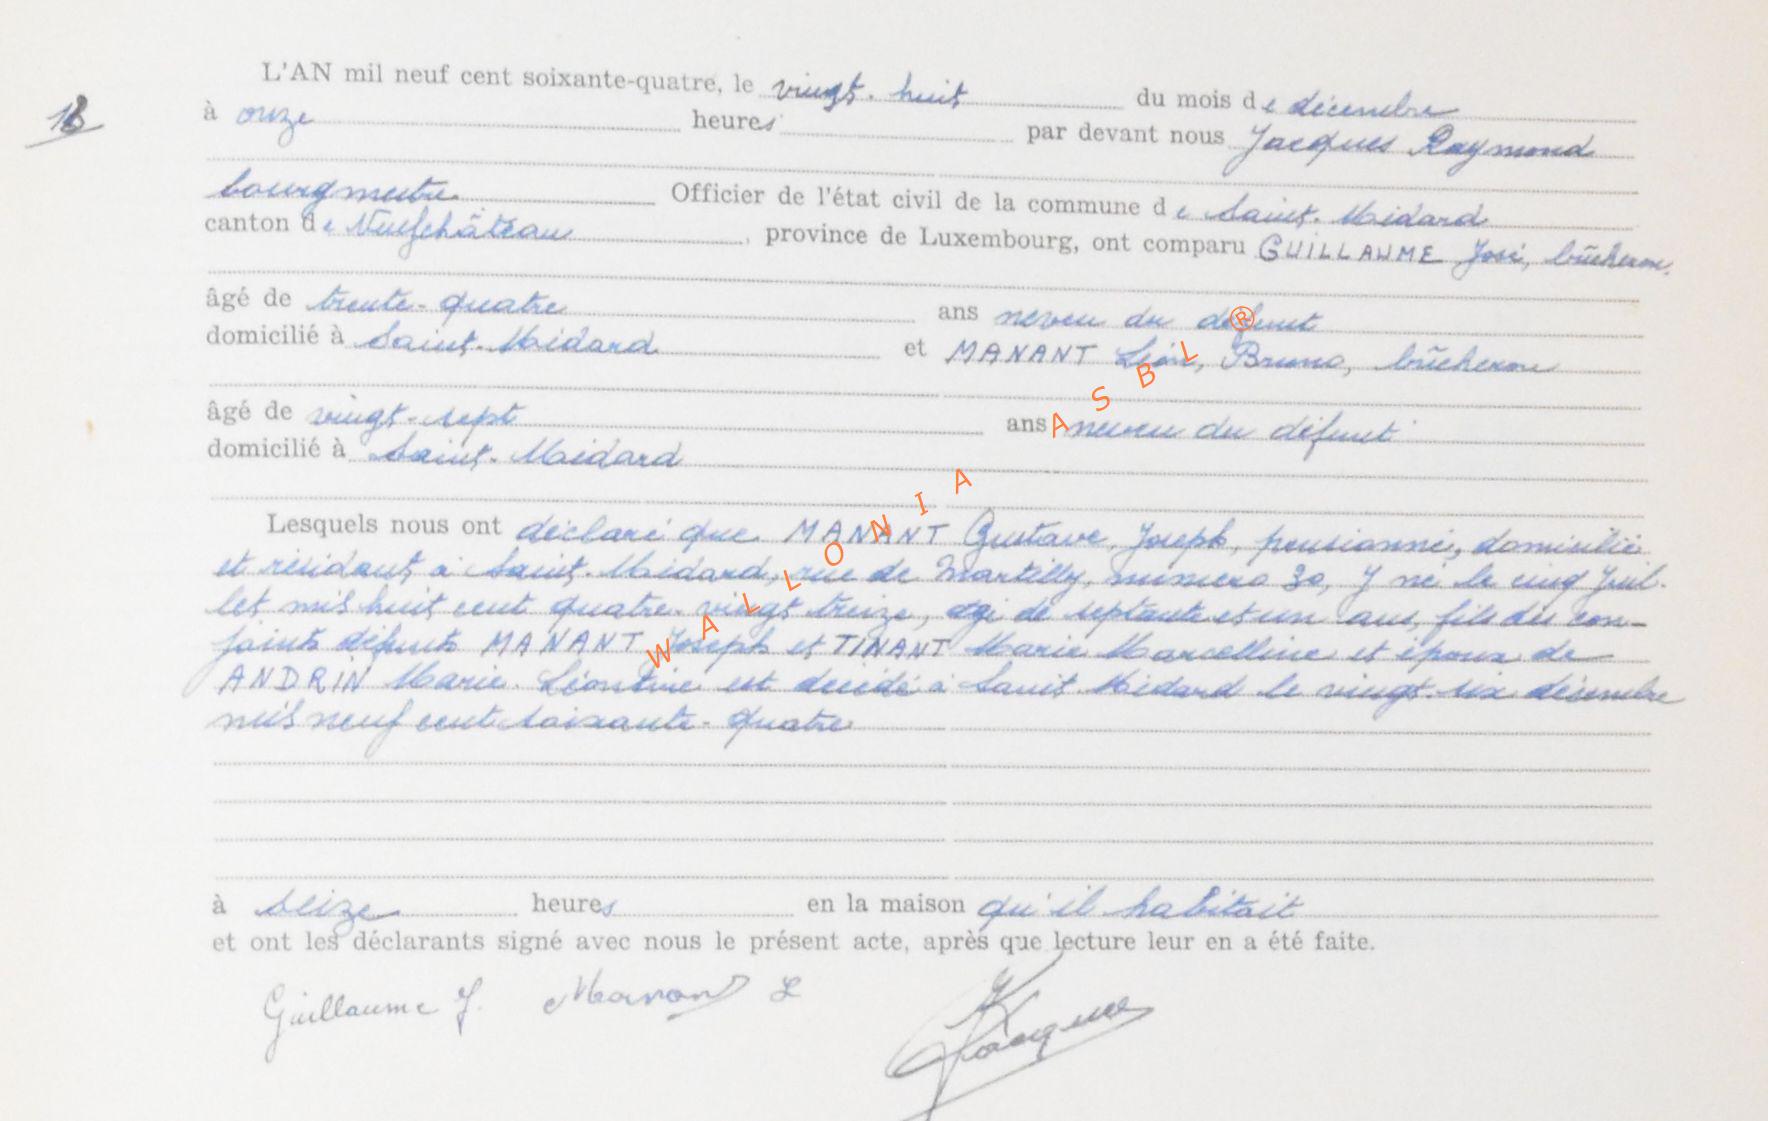 L'AN mil neuf cent soixante-quatre, le vingt-huit du mois de décembre
18
à onze heures par devant nous Jacques Raymond
bourgmestre Officier de l'état civil de la commune de Saint-Médard
canton de Neufchâteau, province de Luxembourg, ont comparu GUILLAUME José, bûcheron,
âgé de trente-quatre ans neveu du défunt
domicilié à Saint-Médard et MANANT Léon, Bruno, bûcheron
âgé de vingt-sept ans neveu du défunt
domicilié à Saint-Médard
Lesquels nous ont déclaré que MANANT Gustave, Joseph, pensionné, domicilié
et résidant à Saint-Médard, rue de Martilly, numéro 30, y né le cinq juil-
let mil huit cent quatre-vingt treize, âgé de septante et un ans, fils des con-
joints défunts MANANT Joseph et TINANT Marie Marcelline et époux de
ANDRIN Marie-Léontine est décédé à Saint Médard le vingt-six décembre
mil neuf cent soixante-quatre
à seize heures en la maison qu'il habitait
et ont les déclarants signé avec nous le présent acte, après que lecture leur en a été faite.
Guillaume J. Manant L Jacques
WALLONIA ASBL ®